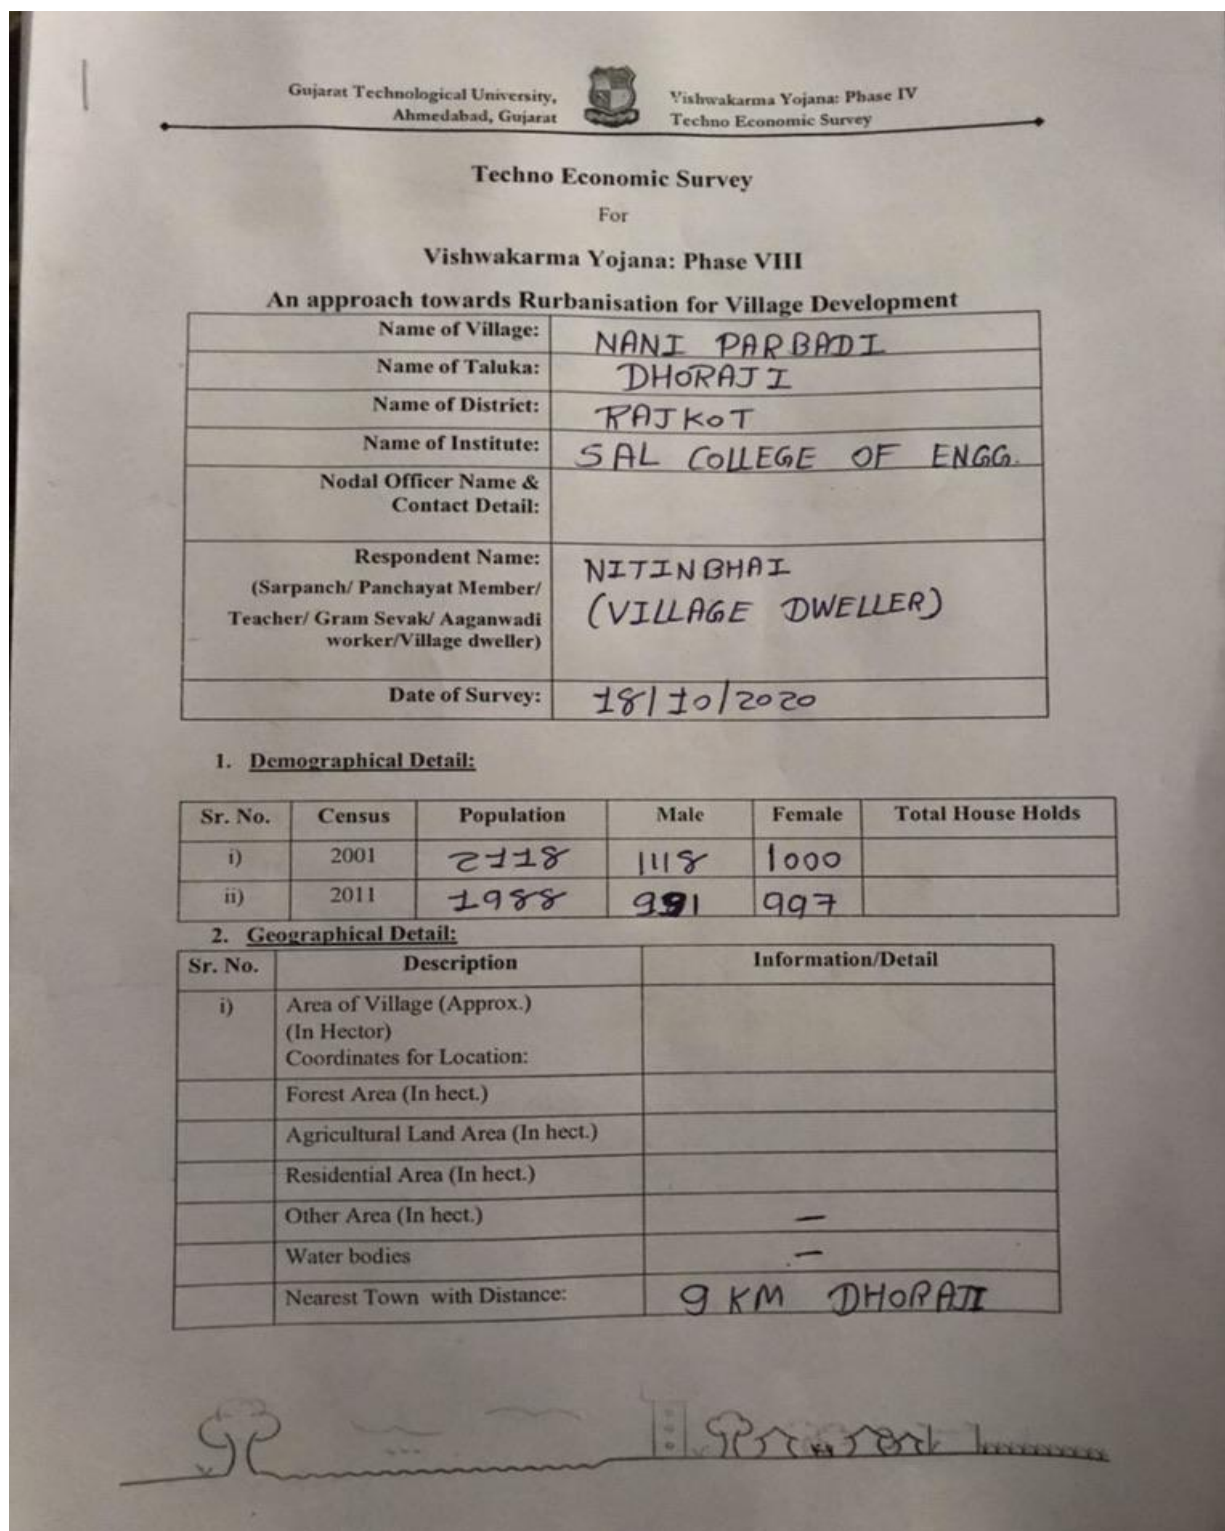 Gujarat Technological University,
Ahmedabad, Gujarat
Vishwakarma Yojana: Phase IV
Techno Economic Survey
Techno Economic Survey
For
Vishwakarma Yojana: Phase VIII
An approach towards Rurbanisation for Village Development
Name of Village: NANI PARBADI
Name of Taluka: DHORAJI
Name of District: RAJKOT
Name of Institute: SAL COLLEGE OF ENGG.
Nodal Officer Name &
Contact Detail:
Respondent Name: NITINBHAI
(Sarpanch/ Panchayat Member/ (VILLAGE DWELLER)
Teacher/ Gram Sevak/ Aaganwadi
worker/Village dweller)
Date of Survey: 18/10/2020
1. Demographical Detail:
Sr. No. Census Population Male Female Total House Holds
i) 2001 2118 1118 1000
ii) 2011 1988 991 997
2. Geographical Detail:
Sr. No. Description Information/Detail
i) Area of Village (Approx.)
(In Hector)
Coordinates for Location:
Forest Area (In hect.)
Agricultural Land Area (In hect.)
Residential Area (In hect.)
Other Area (In hect.) —
Water bodies —
Nearest Town with Distance: 9 KM DHORAJI